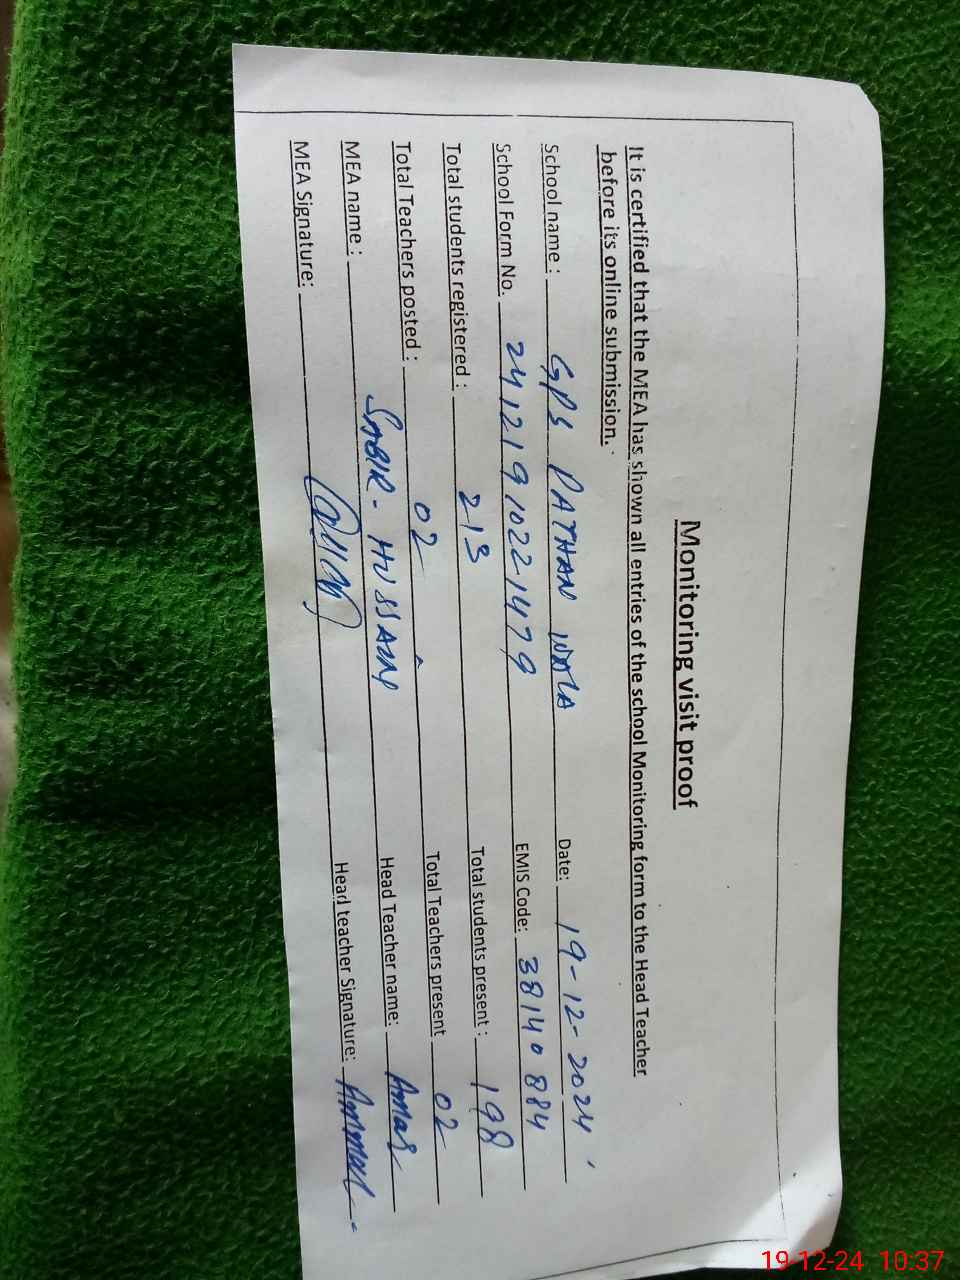 Monitoring visit proof
It is certified that the MEA has shown all entries of the school Monitoring form to the Head Teacher
before its online submission.
School name : GPS PATHAN WALA Date: 19-12-2024
School Form No. 24121910221479 EMIS Code: 38140884
Total students registered : 213 Total students present : 198
Total Teachers posted : 02 Total Teachers present 02
MEA name : SABIR- HUSSAIN Head Teacher name:
MEA Signature: Head teacher Signature:
19-12-24 10:37